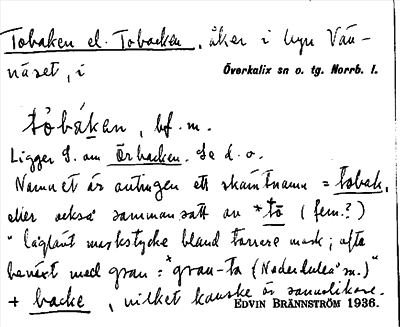 Tobaken el. Tobacken, åker i byn Vän-
näset, i Överkalix sn o. tg. Norrb. l.
tòbàken, bf. m.
Ligger S. om Örbacken. Se d. o.
Namnet är antingen ett skämtnamn = tobak,
eller också sammansatt av *tō (fem.?)
"låglänt markstycke bland torrare mark; ofta
beväxt med gran": *gran-ta (Nederluleå sn.)"
+ backe, vilket kanske är sannolikare.
EDVIN BRÄNNSTRÖM 1936.